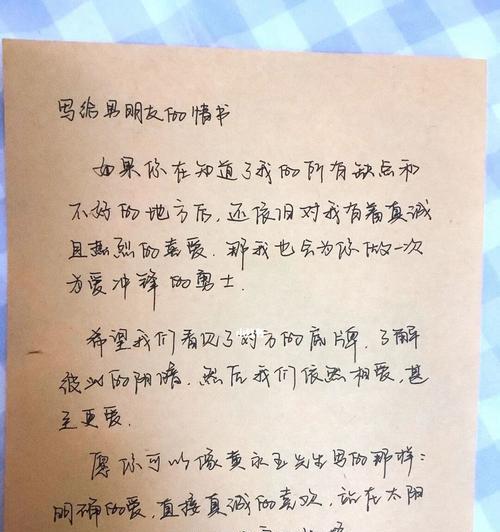 写给男朋友的情书
如果你在知道了我的所有缺点和
不好的地方后，还依旧对我有着真诚
且热烈的喜爱．那我也会为你做一次
为爱冲锋的勇士．
希望我们看见了对方的底牌．了解
彼此的阴暗．然后我们依然相爱，甚
至更爱．
愿你可以像黄永玉先生写的那样：
明确的爱，直接真诚的喜欢，站在太阳